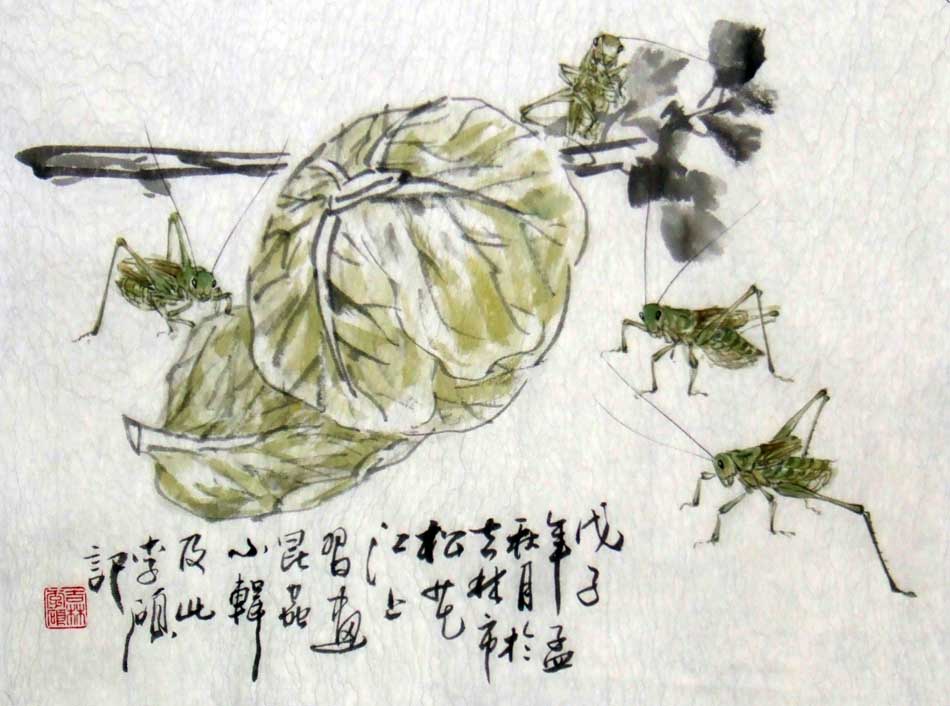 戊子
年孟
秋月於
吉林市
松花
江上
習畫
昆蟲
小輯
及此
李碩
記